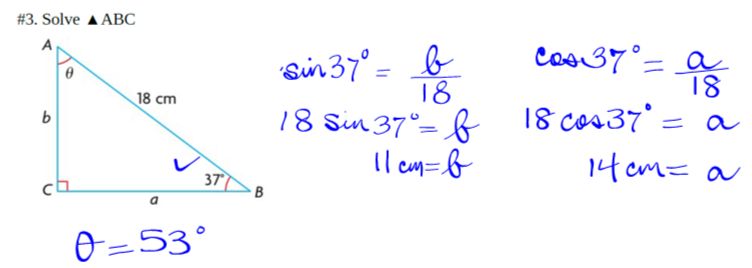 #3. Solve ▲ABC
A
θ
18 cm
b
37°
C
B
a
θ = 53°
sin 37° = b/18
18 sin 37° = b
11 cm = b
cos 37° = a/18
18 cos 37° = a
14 cm = a